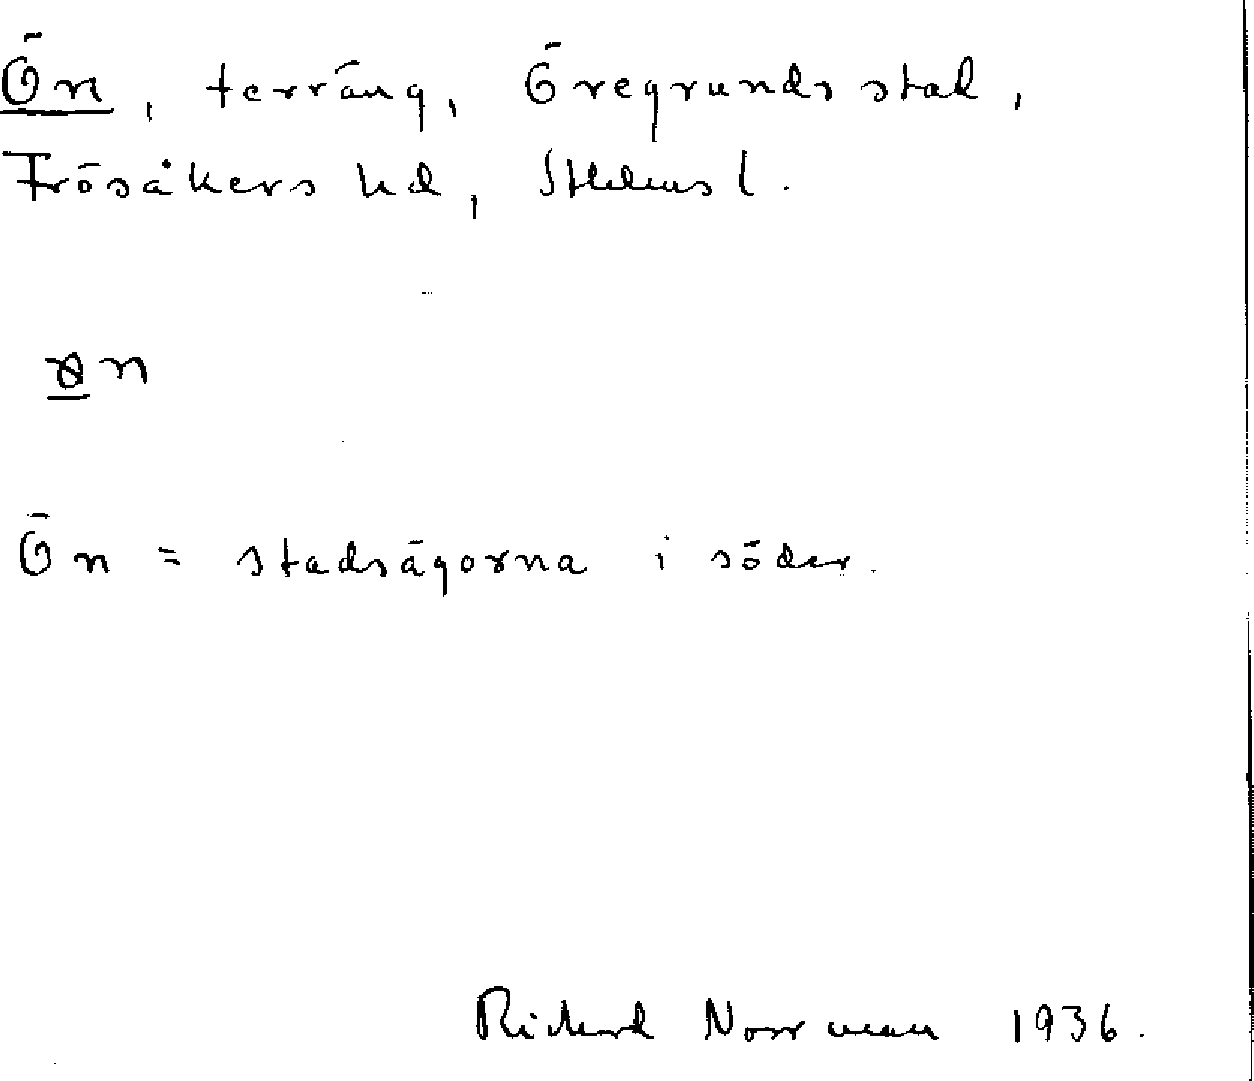 Ön, terräng, Öregrunds stad,
Frösåkers hd, Sthlms l.
ɷn
Ön = stadsägorna i söder.
Richard Norrman 1936.